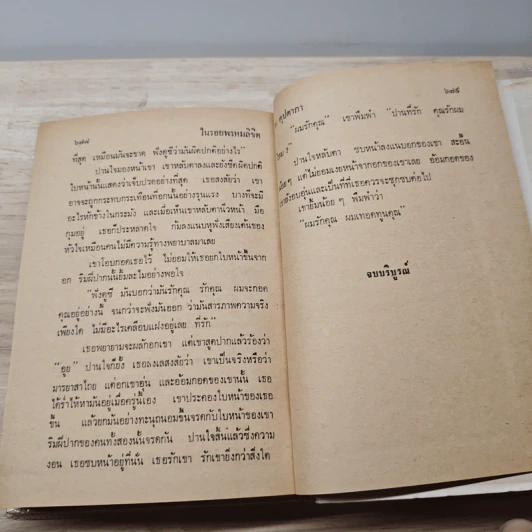 ๖๗๘ ในรอยพรหมลิขิต
ที่สุด เหมือนมันจะขาด ฟังดูซีว่ามันผิดปกติอย่างไร"
ปานใจมองหน้าเขา เขาหลับตาลงและยังซีดผิดปกติ
ใบหน้านั้นแสดงว่าเจ็บปวดอย่างที่สุด เธอสงสัยว่า เขา
อาจจะถูกกระทบกระเทือนที่อกนั้นอย่างรุนแรง บางทีจะมี
อะไรหักข้างในกระมัง และเมื่อเห็นเขาหลับตานิ่วหน้า มือ
กุมอยู่ เธอก็ประหลาดใจ ก้มลงแนบหูฟังเสียงเต้นของ
หัวใจเหมือนคนไม่มีความรู้ทางพยาบาลมาเลย
เขาโอบกอดเธอไว้ ไม่ยอมให้เธอยกใบหน้าขึ้นจาก
อก ริมฝีปากนั้นยิ้มละไมอย่างพอใจ
"ฟังดูซี มันบอกว่ามันรักคุณ รักคุณ ผมจะกอด
คุณอยู่อย่างนี้ จนกว่าจะฟังมันออก ว่ามันสารภาพความจริง
เพียงใด ไม่มีอะไรเคลือบแฝงอยู่เลย ที่รัก"
เธอพยายามจะผลักอกเขา แต่เขาสูดปากแล้วร้องว่า
"อูย" ปานใจก็ยั้ง เธอลงเลสงสัยว่า เขาเป็นจริงหรือว่า
มารยาสาไถย แต่อกเขาอุ่น และอ้อมกอดของเขานั้น เธอ
ได้ร่ำไห้หามันอยู่เมื่อครู่นี้เอง เขาประคองใบหน้าของเธอ
ขึ้น แล้วยกมันอย่างทะนุถนอมขึ้นจรดกับใบหน้าของเขา
ริมฝีปากของคนทั้งสองนั้นจรดกัน ปานใจสิ้นแล้วซึ่งความ
งอน เธอซบหน้าอยู่ที่นั่น เธอรักเขา รักเขายิ่งกว่าสิ่งใด
บุปผากา ๖๗๙
"ผมรักคุณ" เขาพึมพำ "ปานที่รัก คุณรักผม
ไหม ?
ปานใจหลับตา ซบหน้าลงแนบอกของเขา สะอื้น
น้อยๆ แต่ไม่ยอมเงยหน้าจากอกของเขาเลย อ้อมกอดของ
เขาซึ่งอบอุ่นและเป็นที่ที่เธอควรจะซุกซบต่อไป
เขายิ้มน้อยๆ พึมพำว่า
"ผมรักคุณ ผมเทอดทูนคุณ"
จบบริบูรณ์